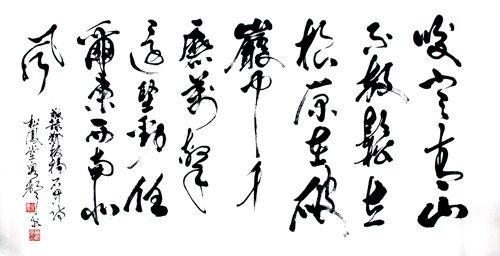 咬定青山
不放鬆立
根原在破
巖中千
磨萬擊
還堅勁任
爾東西南北
風
鄭板橋